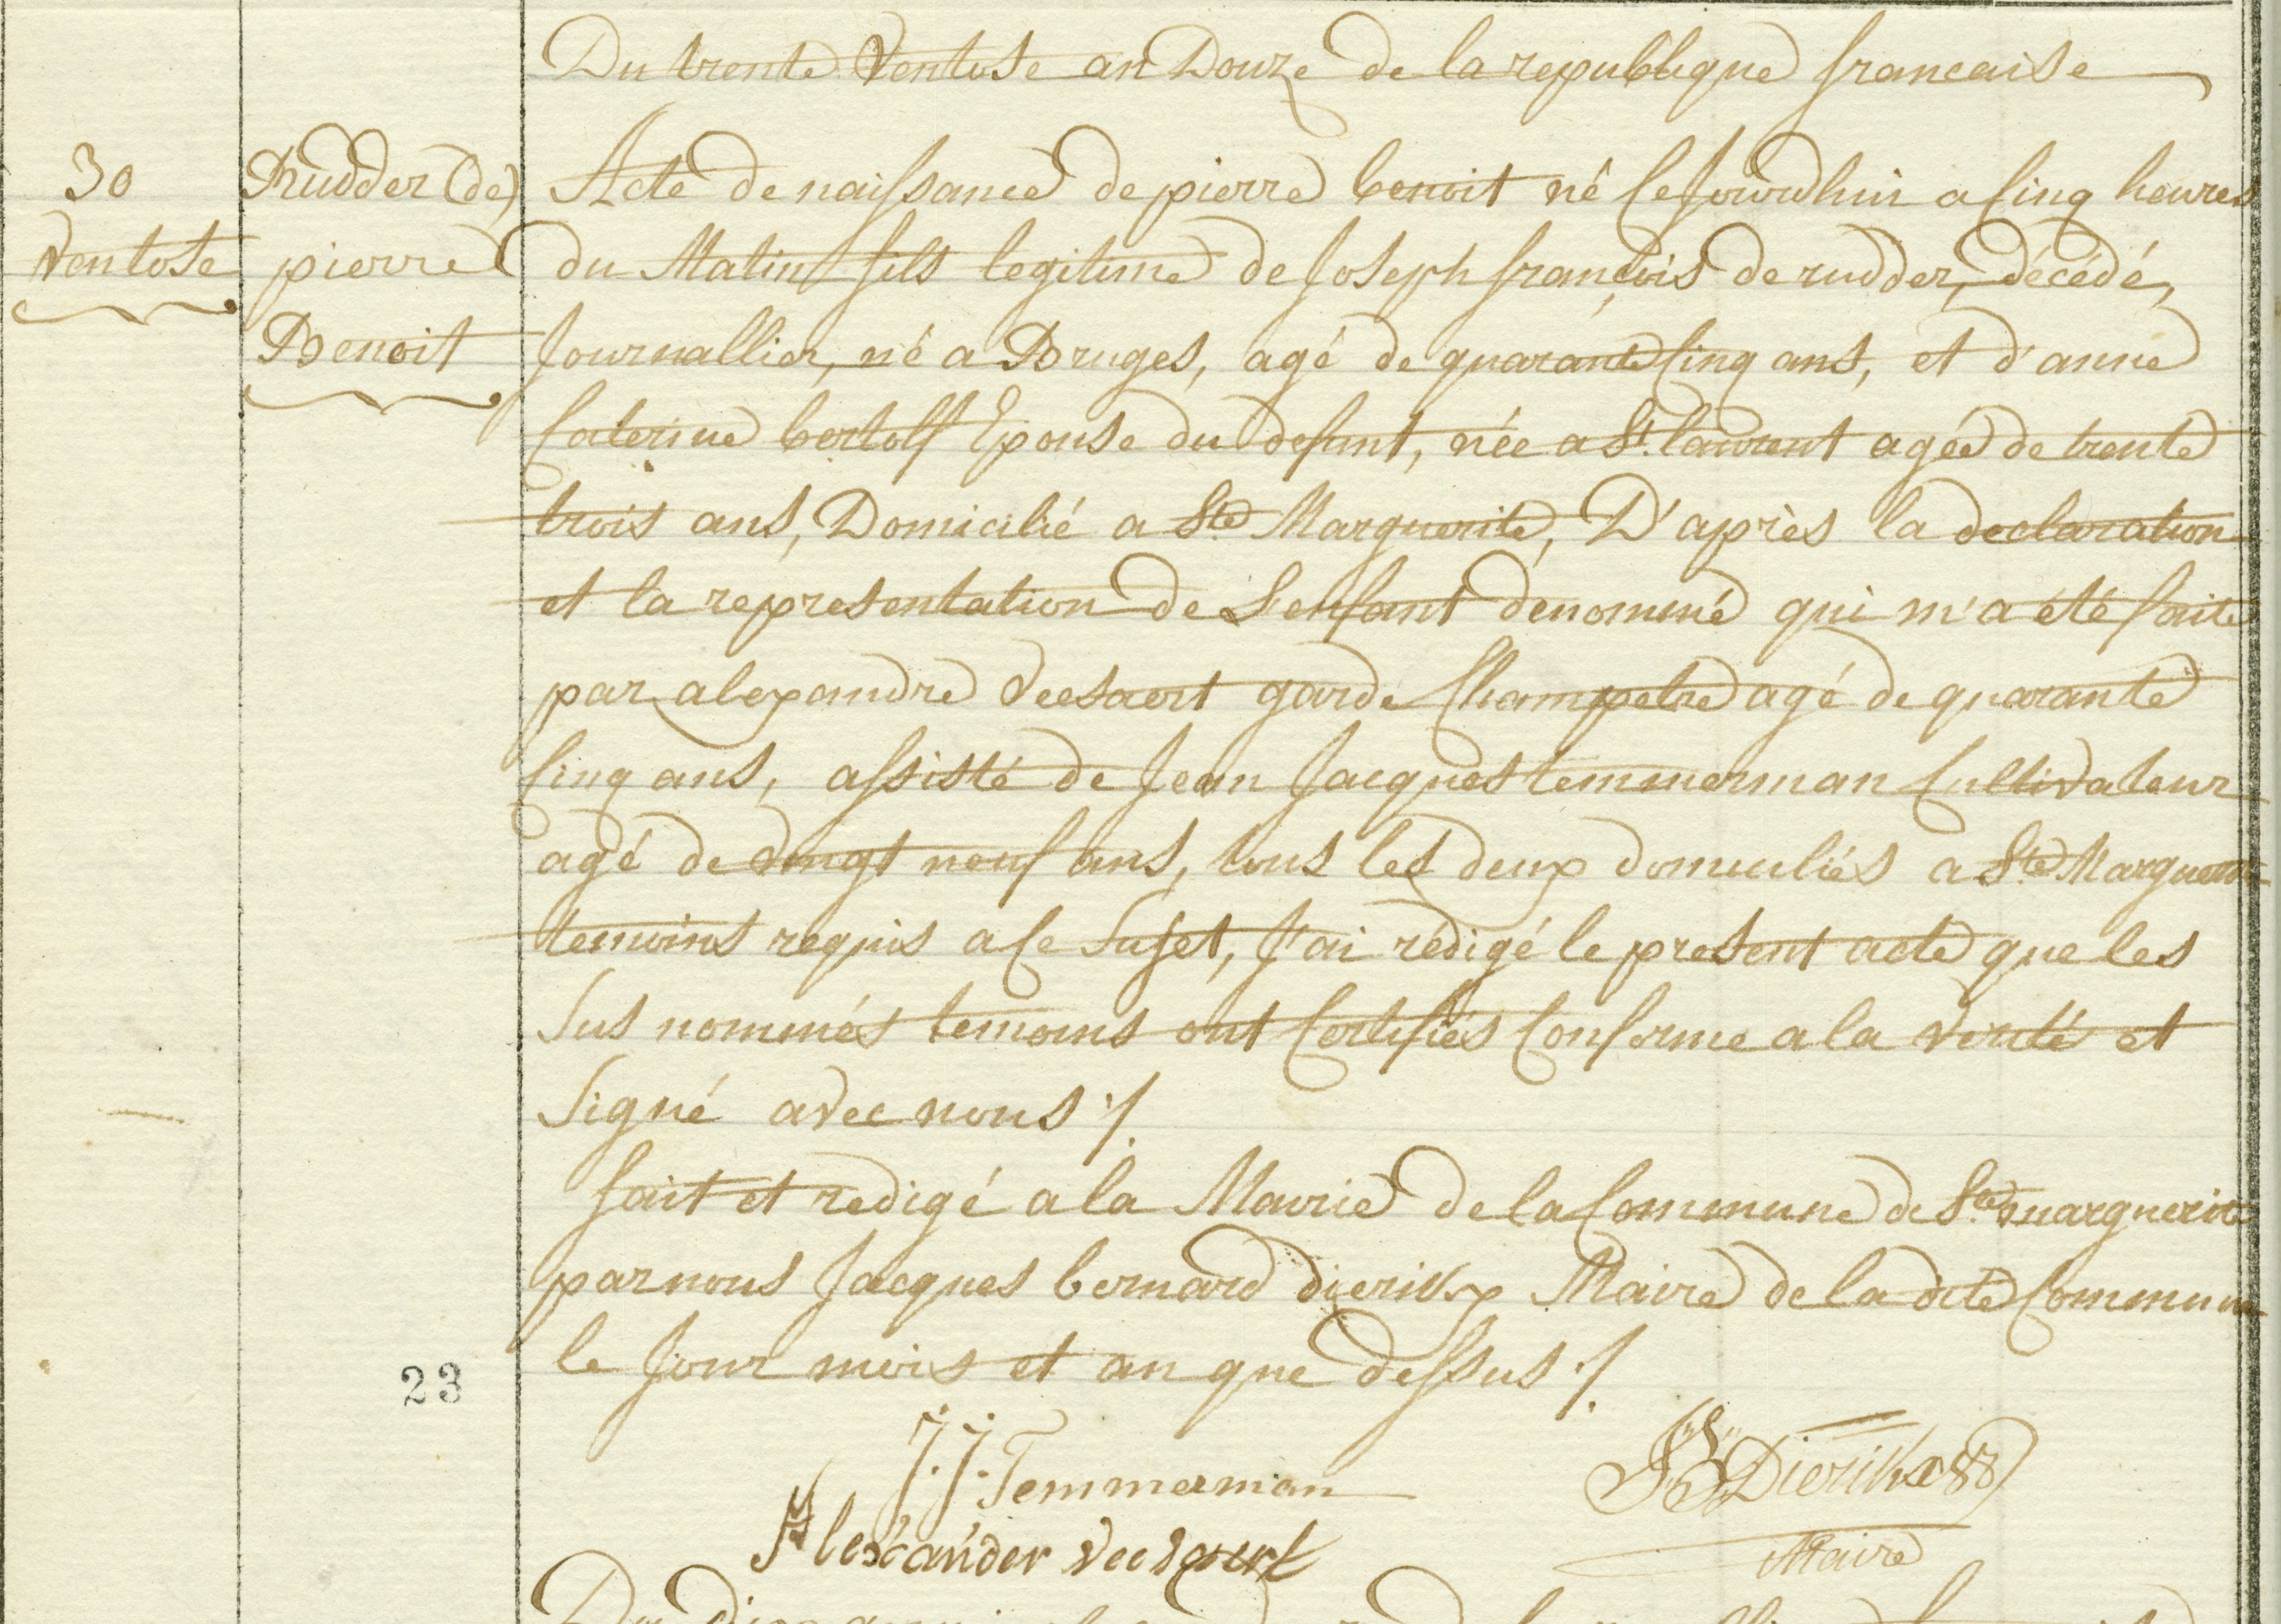 Du trente Ventose an Douze de la republique francaise
30
Ventose
Rudder (de)
pierre
Benoit
Acte de naissance de pierre benoit né cejourdhui a cinq heures
du Matin fils legitime de Joseph francois de rudder, décédé,
Journallier, né a Bruges, agé de quarante cinq ans, et d'anne
Caterine bertolf Epouse du defunt, née a St. laurent agée de trente
trois ans, Domicilié a Ste Marguerite, D'après la declaration
et la representation de L'enfant denommé qui m'a été faite
par alexandre Veesaert garde Champetre agé de quarante
cinq ans, assisté de Jean Jacques temmerman Cultivateur
agé de vingt neuf ans, tous les deux domiciliés a Ste Marguerite
temoins requis a ce Sujet, J'ai rédigé le present acte que les
Sus nommés temoins ont Certifiés Conforme a la verité et
Signé avec nous ./.
fait et redigé a la Mairie de la Commune de Ste marguerite
par nous Jacques bernard dierikx Maire de la dite Commune
le Jour mois et an que dessus ./.
23
J. J. Temmerman
JB Dierikx
Alexander Veesaert
Maire